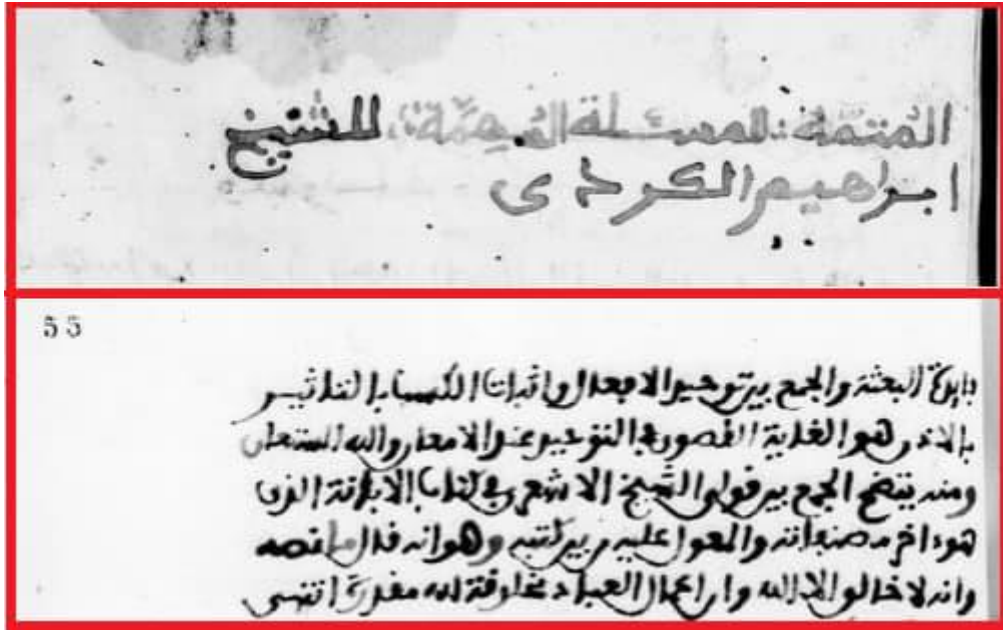 المتممة للمسئلة المهمة للشيخ
ابراهيم الكردى
55
البعثة والجمع بين توحيد الافعال واثبات الكسب بالتاثير
بالاذن هو الغاية القصوى فى التوحيد عند الامعان والله المستعان
ومنه يتضح الجمع بين قولى الشيخ الاشعرى فى كتاب الابانة الذى
هو ءاخر مصنفاته والمعول عليه من بين كتبه وهو انه قال ما نصه
وانه لا خالق الا الله وان اعمال العباد مخلوقة لله مقدرة انتهى